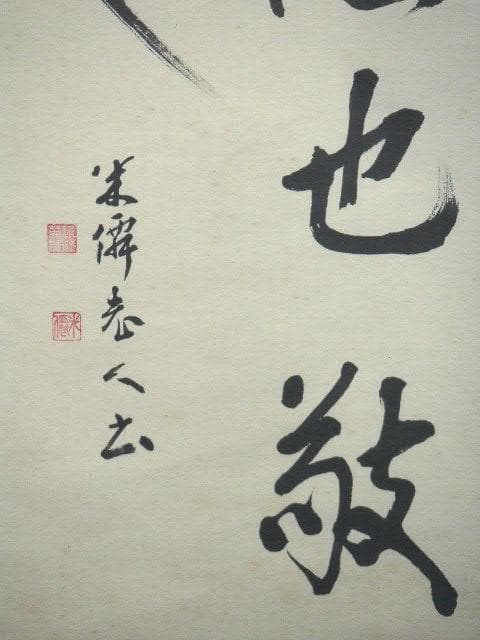 也敬
米僊老人書